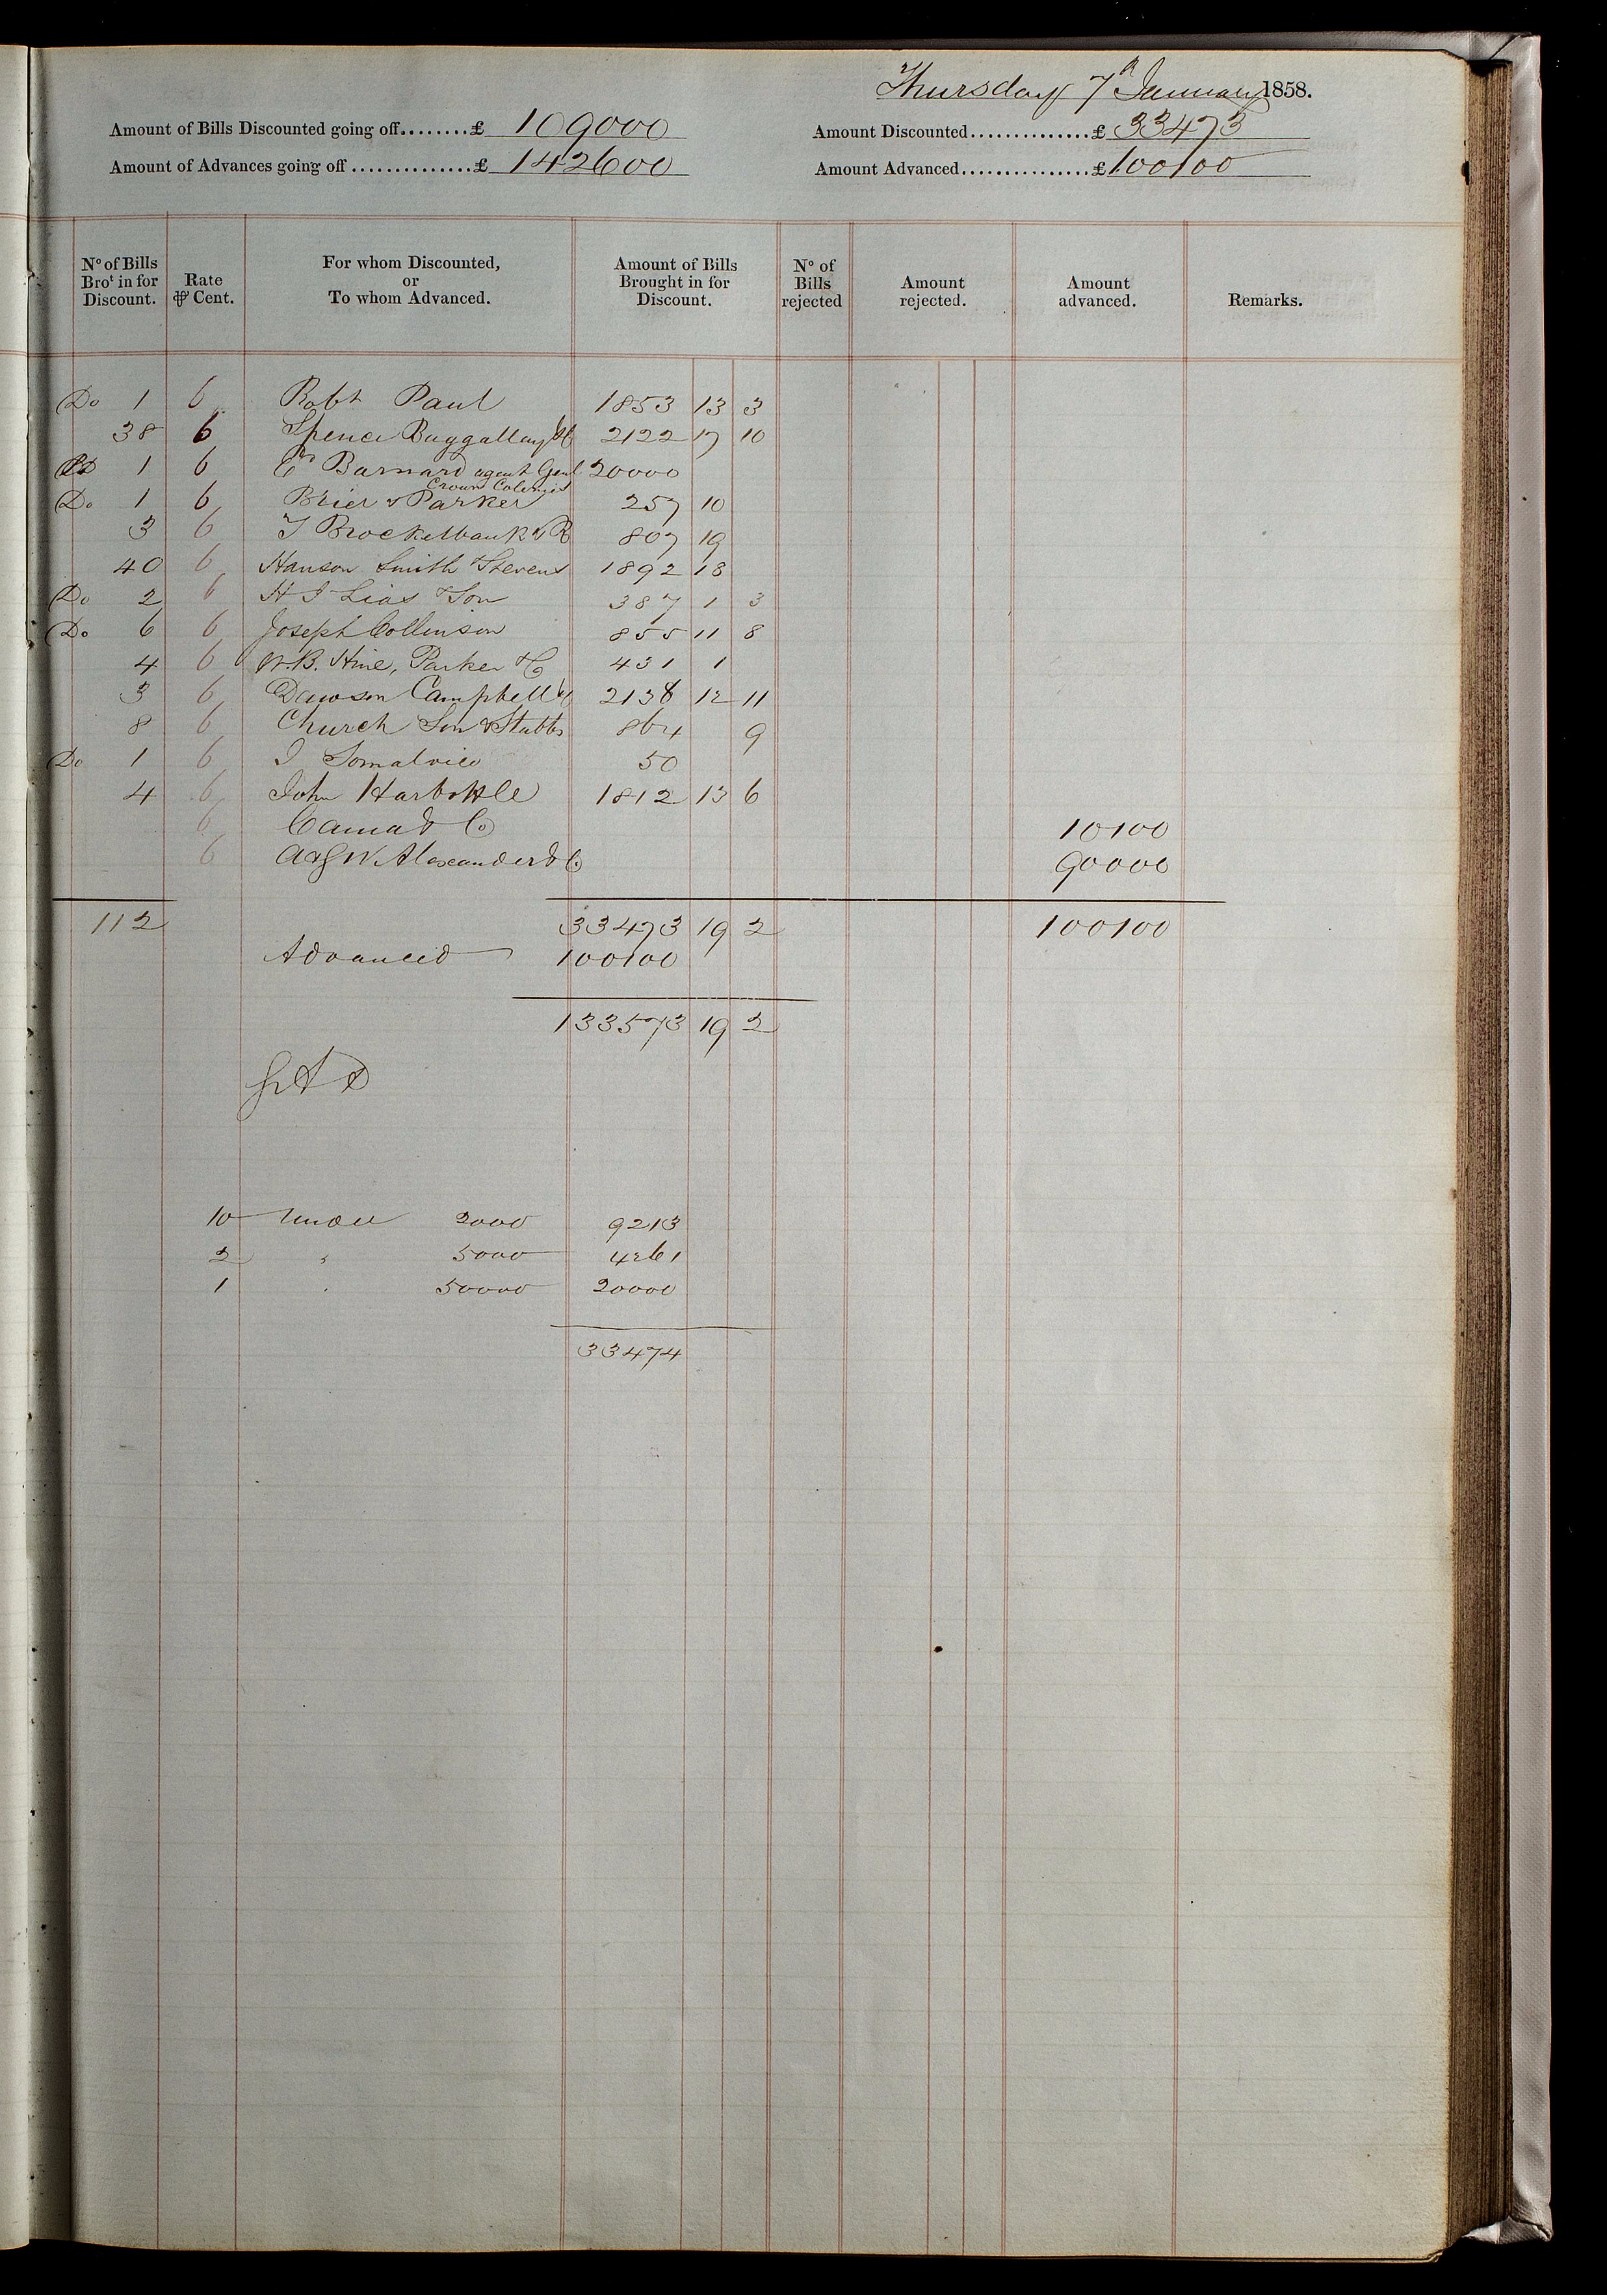 Thursday 7th January 1858.
Amount of Bills Discounted going off........£ 109000 Amount Discounted..............£ 33473
Amount of Advances going off..............£ 142600 Amount Advanced...............£ 100100
No of Bills Brot in for Discount. Rate ⅌ Cent. For whom Discounted, or To whom Advanced. Amount of Bills Brought in for Discount. No of Bills rejected Amount rejected. Amount advanced. Remarks.
Do 1 6 Robt Paul 1853 13 3
38 6 Spence Baggallay & Co 2122 17 10
1 6 Ed Barnard agent Genl 20000
Crown Colonies
Do 1 6 Brier & Parker 257 10
3 6 T Brockelbank & R 807 19
40 6 Hanson Smith & Stevens 1892 18
Do 2 6 H J Lias & Son 387 1 3
Do 6 6 Joseph Collinson 855 11 8
4 6 W.B. Hine, Parker & Co 431 1
3 6 Dawson Campbell & Co 2138 12 11
8 6 Church Son & Stubbs 864 9
Do 1 6 J Somalvico 50
4 6 John Harbottle 1812 13 6
6 Cama & Co 10100
6 A & GW Alexander & Co 90000
112 33473 19 2 100100
Advanced 100100
133573 19 2
10 under 2000 9213
2 " 5000 4261
1 " 50000 20000
33474